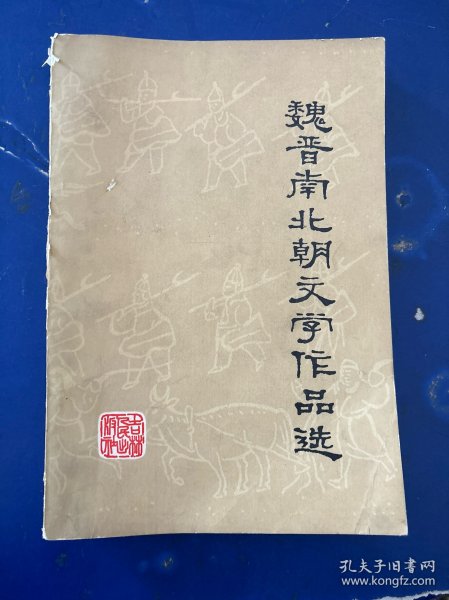 魏晋南北朝文学作品选
吉林人民出版社
孔夫子旧书网
www.kongfz.com